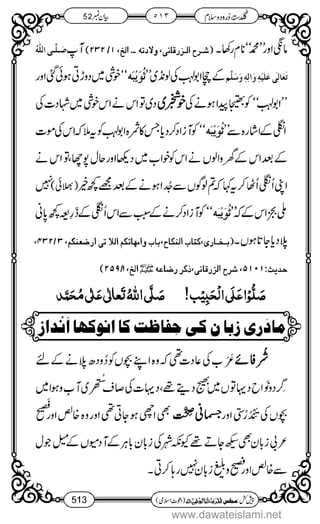 گلدستۂ دُرود و سلام ۵۱۳ بیان نمبر 52
مانگی اور ’’محمد‘‘ نام رکھا۔ (شرح الزرقانی، ولادتہ … الخ، ۱/۲۳۲) آپ صَلَّی اللہُ
تَعَالٰی عَلَیْہِ وَاٰلِہٖ وَسَلَّم کے چچا ابولہب کی لونڈی ’’ثُوَیْبَہ‘‘ خوشی میں دوڑتی ہوئی گئی اور
’’ابولہب‘‘ کو بھتیجا پیدا ہونے کی خوشخبری دی تو اس نے اس خوشی میں شہادت کی
اُنگلی کے اشارہ سے ’’ثُوَیْبَہ‘‘ کو آزاد کر دیا جس کا ثمرہ ابولہب کو یہ ملا کہ اس کی موت
کے بعد اس کے گھر والوں نے اس کو خواب میں دیکھا اور حال پوچھا، تو اس نے
اپنی اُنگلی اُٹھا کر یہ کہا کہ تم لوگوں سے جُدا ہونے کے بعد مجھے کچھ خیر (بھلائی) نہیں
ملی بجز اس کے کہ ’’ثُوَیْبَہ‘‘ کو آزاد کرنے کے سبب سے اس اُنگلی کے ذریعہ کچھ پانی
پلا دیا جاتا ہوں۔ (بخاری، کتاب النکاح، باب وامہاتکم اللاتی ارضعنکم، ۳/۴۳۲،
حدیث: ۵۱۰۱، شرح الزرقانی، ذکر رضاعہ ﷺ الخ، ۱/۲۵۹)
صَلُّوْا عَلَی الْحَبِیْب! صَلَّی اللہُ تَعَالٰی عَلٰی مُحَمَّد
مادَری زبان کی حفاظت کا انوکھا انداز
شُرفائے عَرَب کی عادت تھی کہ وہ اپنے بچوں کو دودھ پلانے کے لئے
گرد و نواح دیہاتوں میں بھیج دیتے تھے، دیہات کی صاف ستھری آب و ہوا میں
بچوں کی تندرستی اور جسمانی صحت بھی اچھی ہو جاتی تھی اور وہ خالص اور فصیح
عربی زبان بھی سیکھ جاتے تھے کیونکہ شہر کی زبان باہر کے آدمیوں کے میل جول
سے خالص اور فصیح و بلیغ زبان نہیں رہا کرتی۔
513
www.dawateislami.net